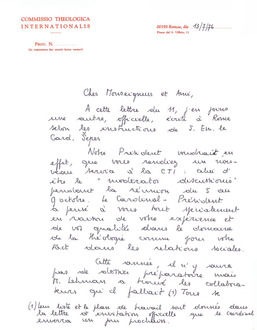 COMMISSIO THEOLOGICA
INTERNATIONALIS
PROT. N.
00193 Romae, die 13/7/76
Piazza del S. Uffizio, 11
Cher Monseigneur et Ami,
A cette lettre du 11, j'en joins
une autre, officielle, écrite à Rome
selon les instructions de S. Em. le
Card. Seper
Notre Président voudrait en
effet, que vous rendiez un nou-
veau service à la CTI : celui d'
être le "moderator discussionis"
pendant la réunion du 5 au
9 octobre. Le Cardinal-Président
a pensé à vous tout spécialement
en raison de votre expérience et
de vos qualités dans le domaine
de la théologie comme pour votre
tact dans les relations sociales.
Cette année, il n'y aura
pas de sessions préparatoires mais
M. Lehman a trouvé les collabora-
teurs qu'il fallait (1) Tous se
(1) leur liste et le plan de travail sont donnés dans
la lettre d'invitation officielle que le cardinal
enverra un jour prochain.